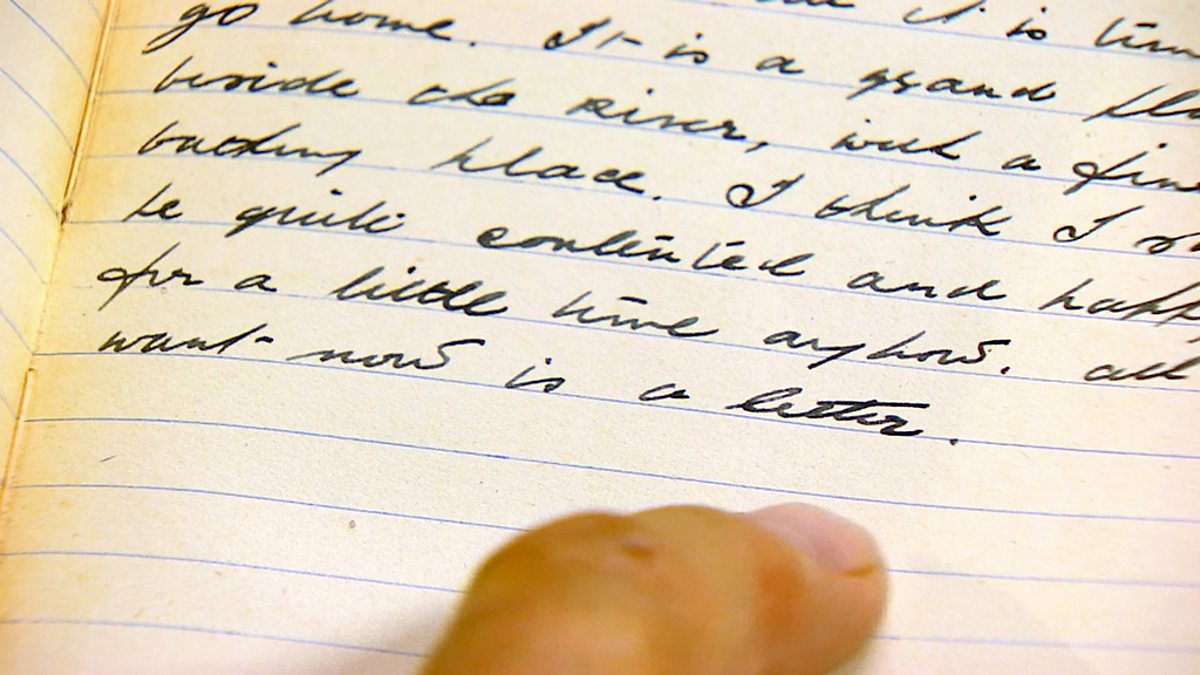 it is time
go home. It is a grand pla
beside the River, with a fine
bathing place. I think I
be quite contented and happ
for a little time anyhow. All
want now is a letter.